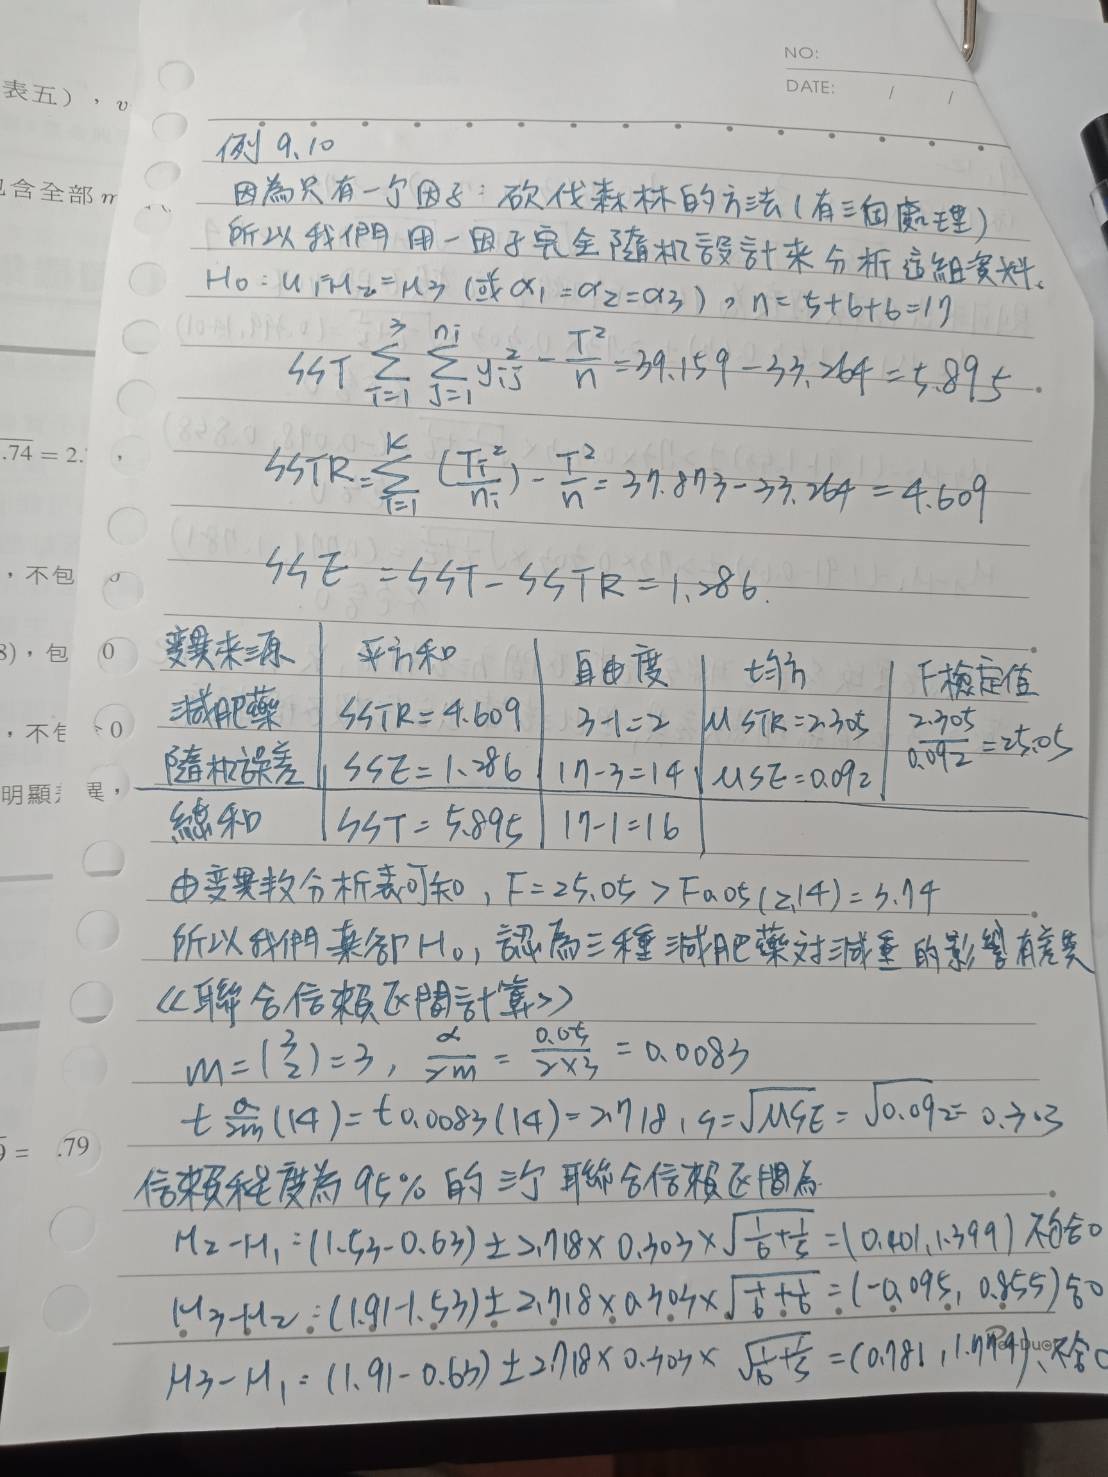 NO:
DATE: / /
表五),v
含全部m
.74 = 2.
,不包
8),包 0
,不包 0
明顯 異,
= .79
例 9.10
因為只有一个因子:砍伐森林的方法(有三個處理)
所以我們用一因子完全隨机設計來分析這組資料。
H₀:μ₁=μ₂=μ₃(或α₁=α₂=α₃),n=5+6+6=17
SST ∑³ᵢ₌₁ ∑ⁿⁱⱼ₌₁ yᵢⱼ² - T²/n = 39.159-33.264=5.895
SSTR=∑ᴷᵢ₌₁ (Tᵢ²/nᵢ) - T²/n = 37.873-33.264=4.609
SSE =SST-SSTR=1.286.
變異來源 平方和 自由度 均方 F檢定值
減肥藥 SSTR=4.609 3-1=2 MSTR=2.305 2.305/0.092=25.05
隨机誤差 SSE=1.286 17-3=14 MSE=0.092
總和 SST=5.895 17-1=16
由變異數分析表可知,F=25.05>F0.05(2,14)=3.74
所以我們棄卻H₀,認為三種減肥藥对減重的影響有差異
<<聯合信賴区間計算>>
m=(3 2)=3, α/2m = 0.05/2×3 = 0.0083
t α/2m (14)=t0.0083(14)=2.718,S=√MSE=√0.092=0.303
信賴程度為95%的三个聯合信賴区間為
μ₂-μ₁:(1.53-0.63)±2.718×0.303×√1/6+1/5=(0.401,1.399)不包含0
μ₃-μ₂:(1.91-1.53)±2.718×0.303×√1/6+1/6=(-0.095,0.855)含0
μ₃-μ₁:(1.91-0.63)±2.718×0.303×√1/6+1/5=(0.781,1.779)、不含0